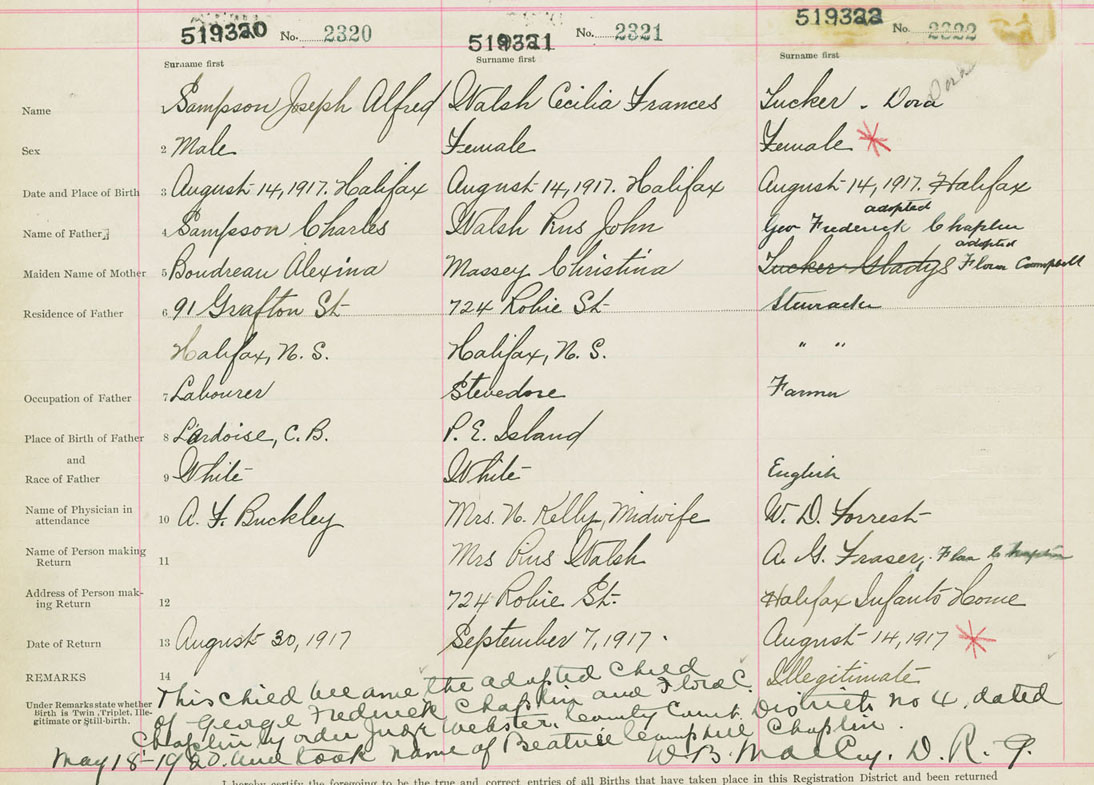 519320 No. 2320 519321 No. 2321 519322 No. 2322
Surname first Surname first Surname first
Dora
Name Sampson Joseph Alfred Walsh Cecilia Frances Tucker - Dora
Sex 2 Male Female Female
Date and Place of Birth 3 August 14, 1917. Halifax August 14, 1917. Halifax August 14, 1917. Halifax
adopted
Name of Father 4 Sampson Charles Walsh Pius John Geo Frederick Chaplin
adopted
Maiden Name of Mother 5 Boudreau Alexina Massey Christina Tucker Gladys Flora Campbell
Residence of Father 6 91 Grafton St 724 Robie St Stewiacke
Halifax, N. S. Halifax, N. S. " "
Occupation of Father 7 Labourer Stevedore Farmer
Place of Birth of Father 8 L'ardoise, C. B. P. E. Island
and
Race of Father 9 White White English
Name of Physician in
attendance 10 A. F. Buckley Mrs. N. Kelly, Midwife W. D. Forrest
Name of Person making
Return 11 Mrs Pius Walsh A. G. Fraser, Flora Chaplin
Address of Person mak-
ing Return 12 724 Robie St. Halifax Infants Home
Date of Return 13 August 30, 1917 September 7, 1917. August 14, 1917
REMARKS 14 Illegitimate
Under Remarks state whether
Birth is Twin, Triplet, Ille-
gitimate or Still-birth.
This child became the adopted child
of George Frederick Chaplin and Flora C.
Chaplin by order Judge Webster. County Court. District no 4, dated
May 18-1920. and took name of Beatrice Campbell Chaplin.
W. B. D. R. G.
I hereby certify the foregoing to be the true and correct entries of all Births that have taken place in this Registration District and been returned